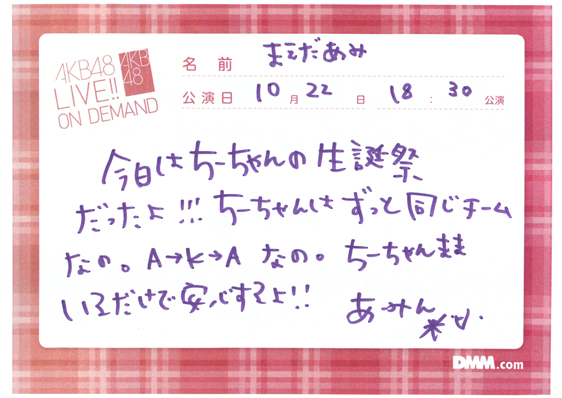 AKB48
LIVE!!
ON DEMAND
AKB
48
名 前 まえだあみ
公演日 10 月 22 日 18 : 30 公演
今日はちーちゃんの生誕祭
だったよ!!! ちーちゃんは ずっと同じチーム
なの。A→K→A なの。ちーちゃんまま
いるだけで安心するよ!!
あーみん
DMM.com